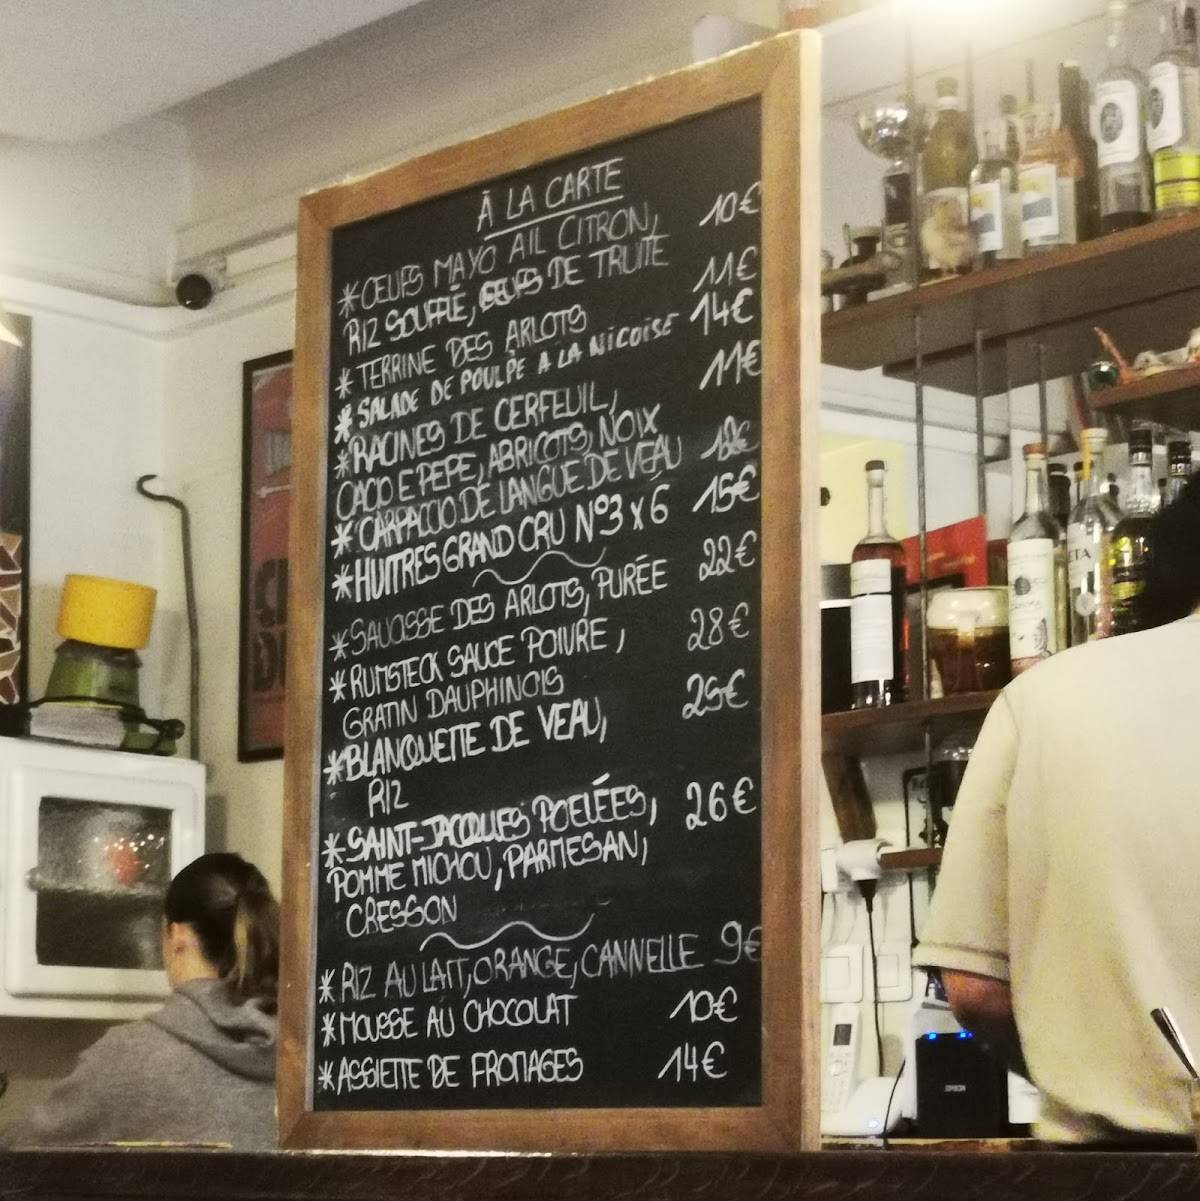 À LA CARTE
*OEUFS MAYO AIL CITRON, 10€
RIZ SOUFFLÉ, OEUFS DE TRUITE
* TERRINE DES ARLOTS 11€
* SALADE DE POULPE A LA NICOISE 14€
*RACINES DE CERFEUIL, 11€
CACIO E PEPE, ABRICOTS, NOIX
* CARPACCIO DE LANGUE DE VEAU
*HUITRES GRAND CRU N°3 X 6 15€
*SAUCISSE DES ARLOTS, PURÉE 22€
*RUMSTECK SAUCE POIVRE, 28€
GRATIN DAUPHINOIS
*BLANQUETTE DE VEAU, 25€
RIZ
*SAINT-JACQUES POELÉES, 26€
POMME MICHOU, PARMESAN,
CRESSON
* RIZ AU LAIT, ORANGE, CANNELLE 9€
*MOUSSE AU CHOCOLAT 10€
*ASSIETTE DE FROMAGES 14€
EPSON